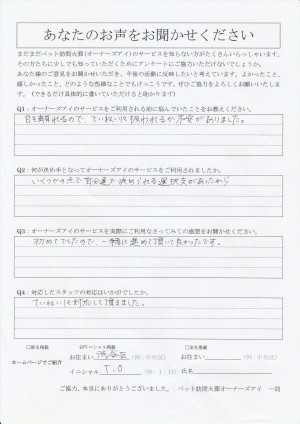 あなたのお声をお聞かせください
まだまだペット訪問火葬(オーナーズアイ)のサービスを知らない方がたくさんいらっしゃいます。
その方たちに少しでも知っていただくためにアンケートにご協力いただけないでしょうか。
あなた様のご意見をお聞かせいただき、今後の活動に反映したいと考えています。よかったこと、
嬉しかったこと、どのような些細なことでもけっこうです。ぜひご協力をよろしくお願いいたしま
す。（できるだけ具体的に書いていただけると助かります）
Q1：オーナーズアイのサービスをご利用される前に悩んでいたことをお教えください。
目も離れるので、ていねいに扱われるか不安がありました。
Q2：何が決め手となってオーナーズアイのサービスをご利用されましたか。
いくつかの点で自分達で決められる選択支があったから
Q3：オーナーズアイのサービスを実際にご利用なさってみての感想をお聞かせください。
初めてでしたので、一緒に進めて頂いて良かったです。
Q4：対応したスタッフの対応はいかがでしたか。
ていねいに対応して頂きました。
□匿名掲載
イニシャル掲載
□実名掲載
ホームページでご紹介
お住まい 渋谷区（例：中央区）
お住まい（例：中央区）
イニシャル T.O（例：J．H）
氏名
ご協力、本当にありがとうございました。 ペット訪問火葬オーナーズアイ 一同